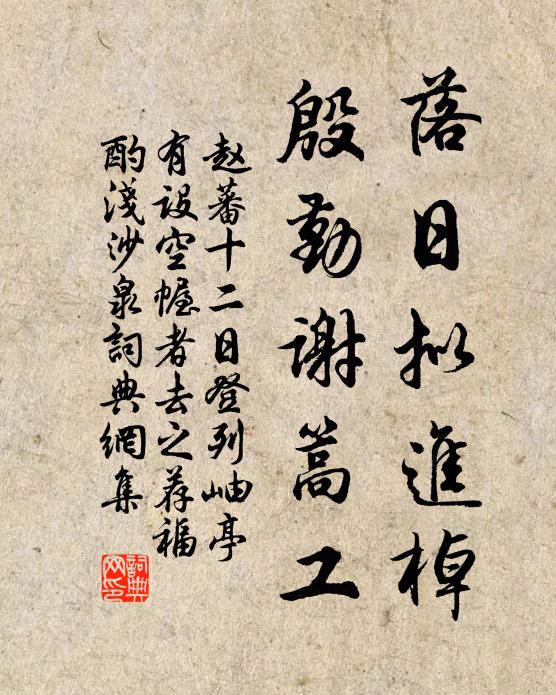 落日拟進棹
殷勤謝蒿工
赵蕃十二日登列岫亭
有设空幄者去之荐福
酌淺沙泉詞典網集
詞典网印